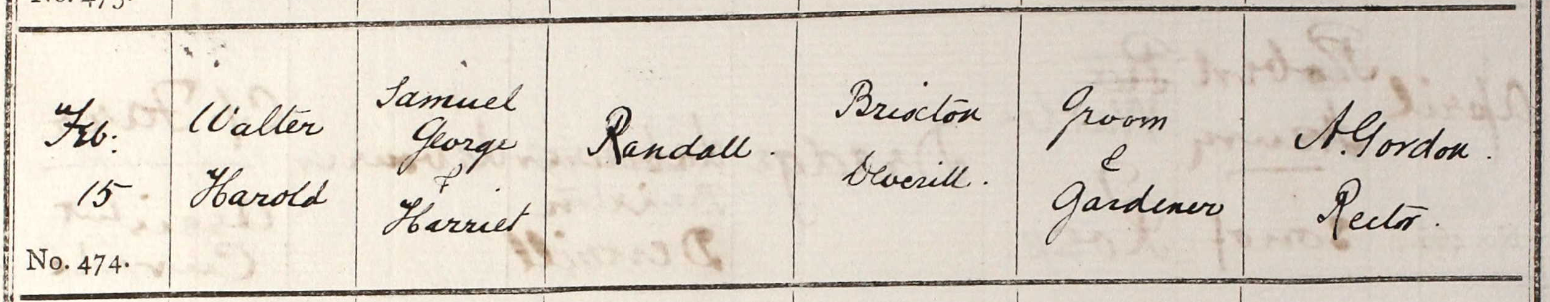 Feb:
15
No. 474.
Walter
Harold
Samuel
George
&
Harriet
Randall.
Brixton
Deverill.
Groom
&
Gardener
A. Gordon.
Rector.